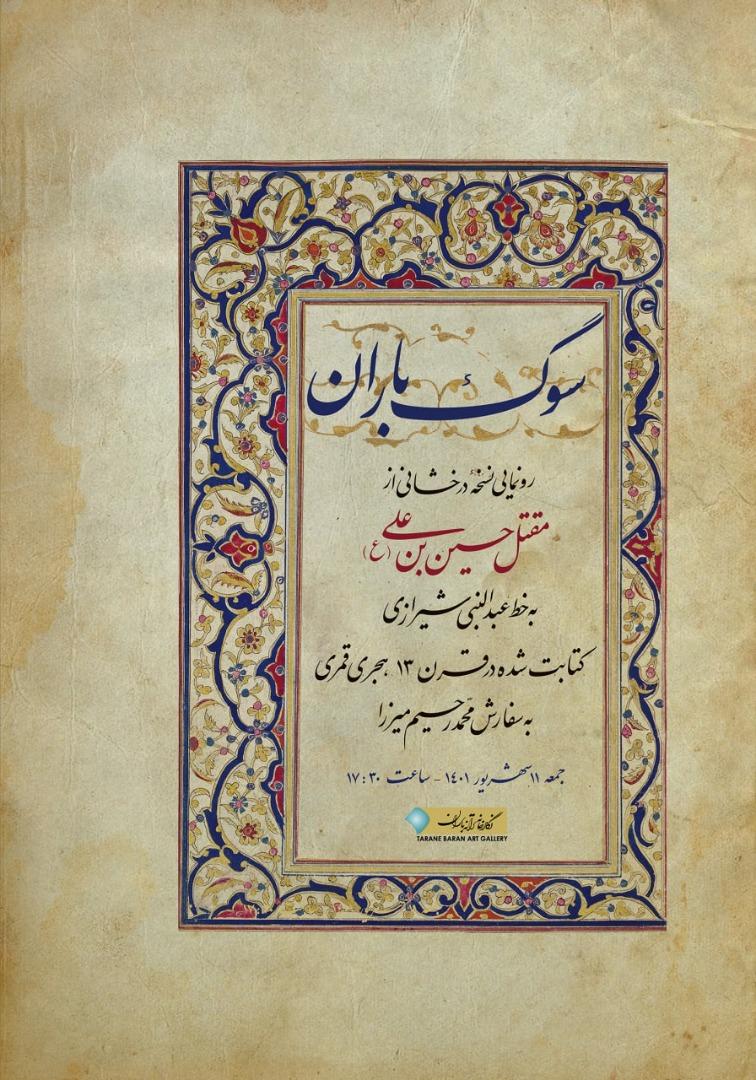 سوگ باران
رونمایی نسخهٔ درخشانی از
مقتل حسین بن علی (ع)
به خط عبدالنبی شیرازی
کتابت شده در قرن ۱۳ هجری قمری
به سفارش محمّد رحیم میرزا
جمعه ۱۱ شهریور ۱۴۰۱ - ساعت ۱۷:۳۰
نگارخانه ترانه باران
TARANE BARAN ART GALLERY